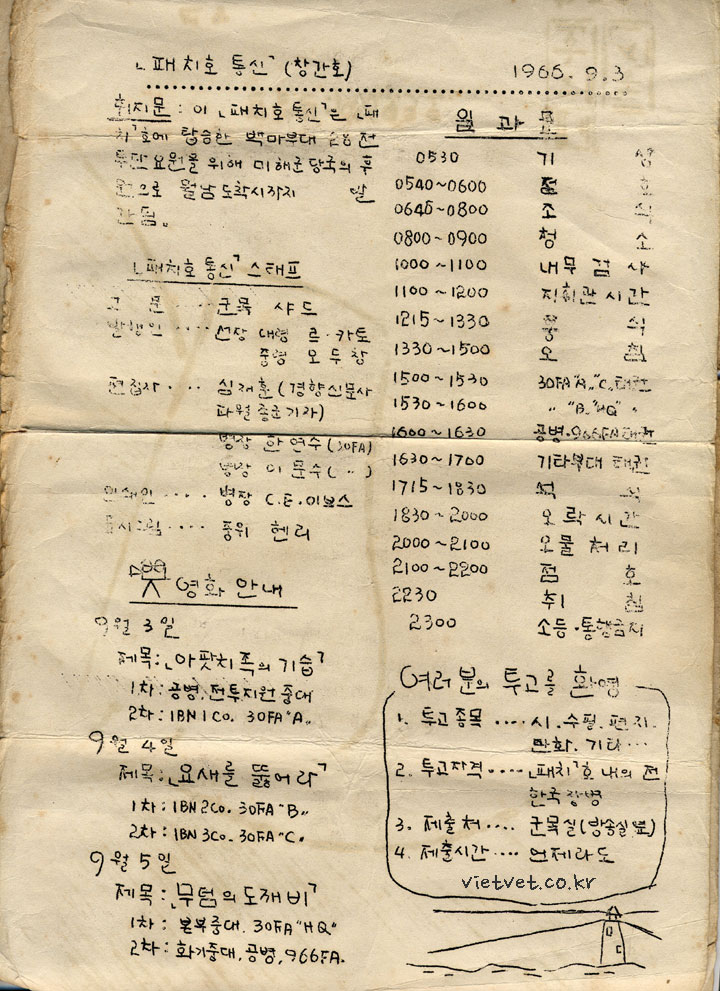 「패치호 통신」 (창간호) 1966. 9. 3
취지문 : 이 「패치호 통신」은 「패
치」호에 탑승한 백마부대 전
투단 요원을 위해 미해군 당국의 후
원으로 월남 도착시까지 발
간됨.
「패치호 통신」 스태프
고 문 ···· 군목 샤드
발행인 ···· 선장 대령 르·카토
중령 모두창
편집자 ··· 심재훈 (경향신문사
파월종군기자)
병장 한연수 (30FA)
병장 이문수 ( 〃 )
인쇄인 ···· 병장 C.E.이보스
···· 중위 헨리
영화 안내
9월 3일
제목:「아팟치족의 기습」
1차: 공병, 전투지원중대
2차: 1BN 1Co. 30FA "A"
9월 4일
제목:「요새를 뚫어라」
1차: 1BN 2Co. 30FA "B"
2차: 1BN 3Co. 30FA "C"
9월 5일
제목:「무덤의 도재비」
1차: 본부중대. 30FA "HQ"
2차: 화기중대, 공병, 966FA.
일 과 표
0530 기 상
0540~0600 점 호
0645~0800 조 식
0800~0900 청 소
1000~1100 내 무 검 사
1100~1200 지휘관 시간
1215~1330 중 식
1330~1500 오 침
1500~1530 30FA "A" "C" 태권
1530~1600 〃 "B" "HQ" 〃
1600~1630 공병·966FA 태권
1630~1700 기타부대 태권
1715~1830 석 식
1830~2000 오 락 시 간
2000~2100 오 물 처 리
2100~2200 점 호
2230 취 침
2300 소등·통행금지
여러분의 투고를 환영
1. 투고종목 ···· 시. 수필. 편지.
만화. 기타···
2. 투고자격 ···· 「패치」호 내의 전
한국장병
3. 제출처 ···· 군목실 (방송실 옆)
4. 제출시간 ···· 언제라도
vietvet.co.kr